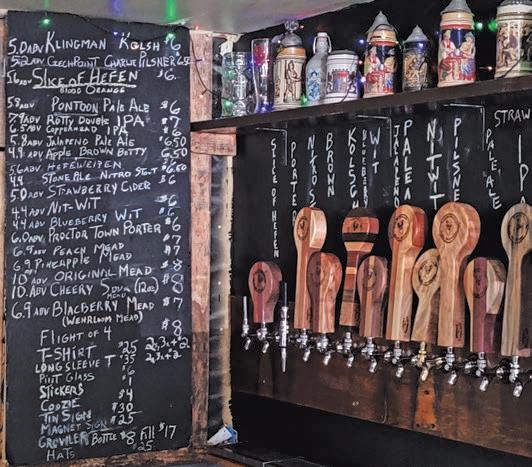 5.0 ABV KLINGMAN KOLSH $6
5.2 ABV CZECHPOINT CHARLIE PILSNER 6.50
5.6 ABV SLICE OF HEFEN $6.
BLOOD ORANGE
5.9 ABV PONTOON PALE ALE $6
7.9 ABV ROTTY DOUBLE IPA $7
6.5 ABV COPPERHEAD IPA $6
5.8 ABV JALAPENO PALE ALE 6.50
4.9 ABV APPLE BROWN BETTY 6.50
5.6 ABV HEFEWEIPEN
4.9 STONE PALE NITRO $6
5.0 ABV STRAWBERRY CIDER
4.4 ABV NIT-WIT
4.4 ABV BLUEBERRY WIT $6
6.0 ABV PROCTOR TOWN PORTER $6
6.9 ABV PEACH MEAD $7
6.9 PINEAPPLE MEAD $7
10. ABV ORIGINAL MEAD $8
10. ABV CHEERY MEAD (12oz) $8
6.9 ABV BLACBERRY MEAD $7
(WEHRLOOM MEAD)
FLIGHT OF 4 $8
T-SHIRT $25 2x, 3x +2
LONG SLEEVE T $35 2x, 3x +2
PINT GLASS $6
STICKERS $1
COOZIE $4
TIN SIGN $30
MAGNET SIGN $25
GROWLER BOTTLE $8, Fill $17
HATS $25
SLICE OF HEFEN
PORTER
NITROS
BROWN
KOLSCH
BLUEBERRY
WIT
JALAPENO
PALE A
NITWIT
PILSNE
PALE ALE
STRAW
P